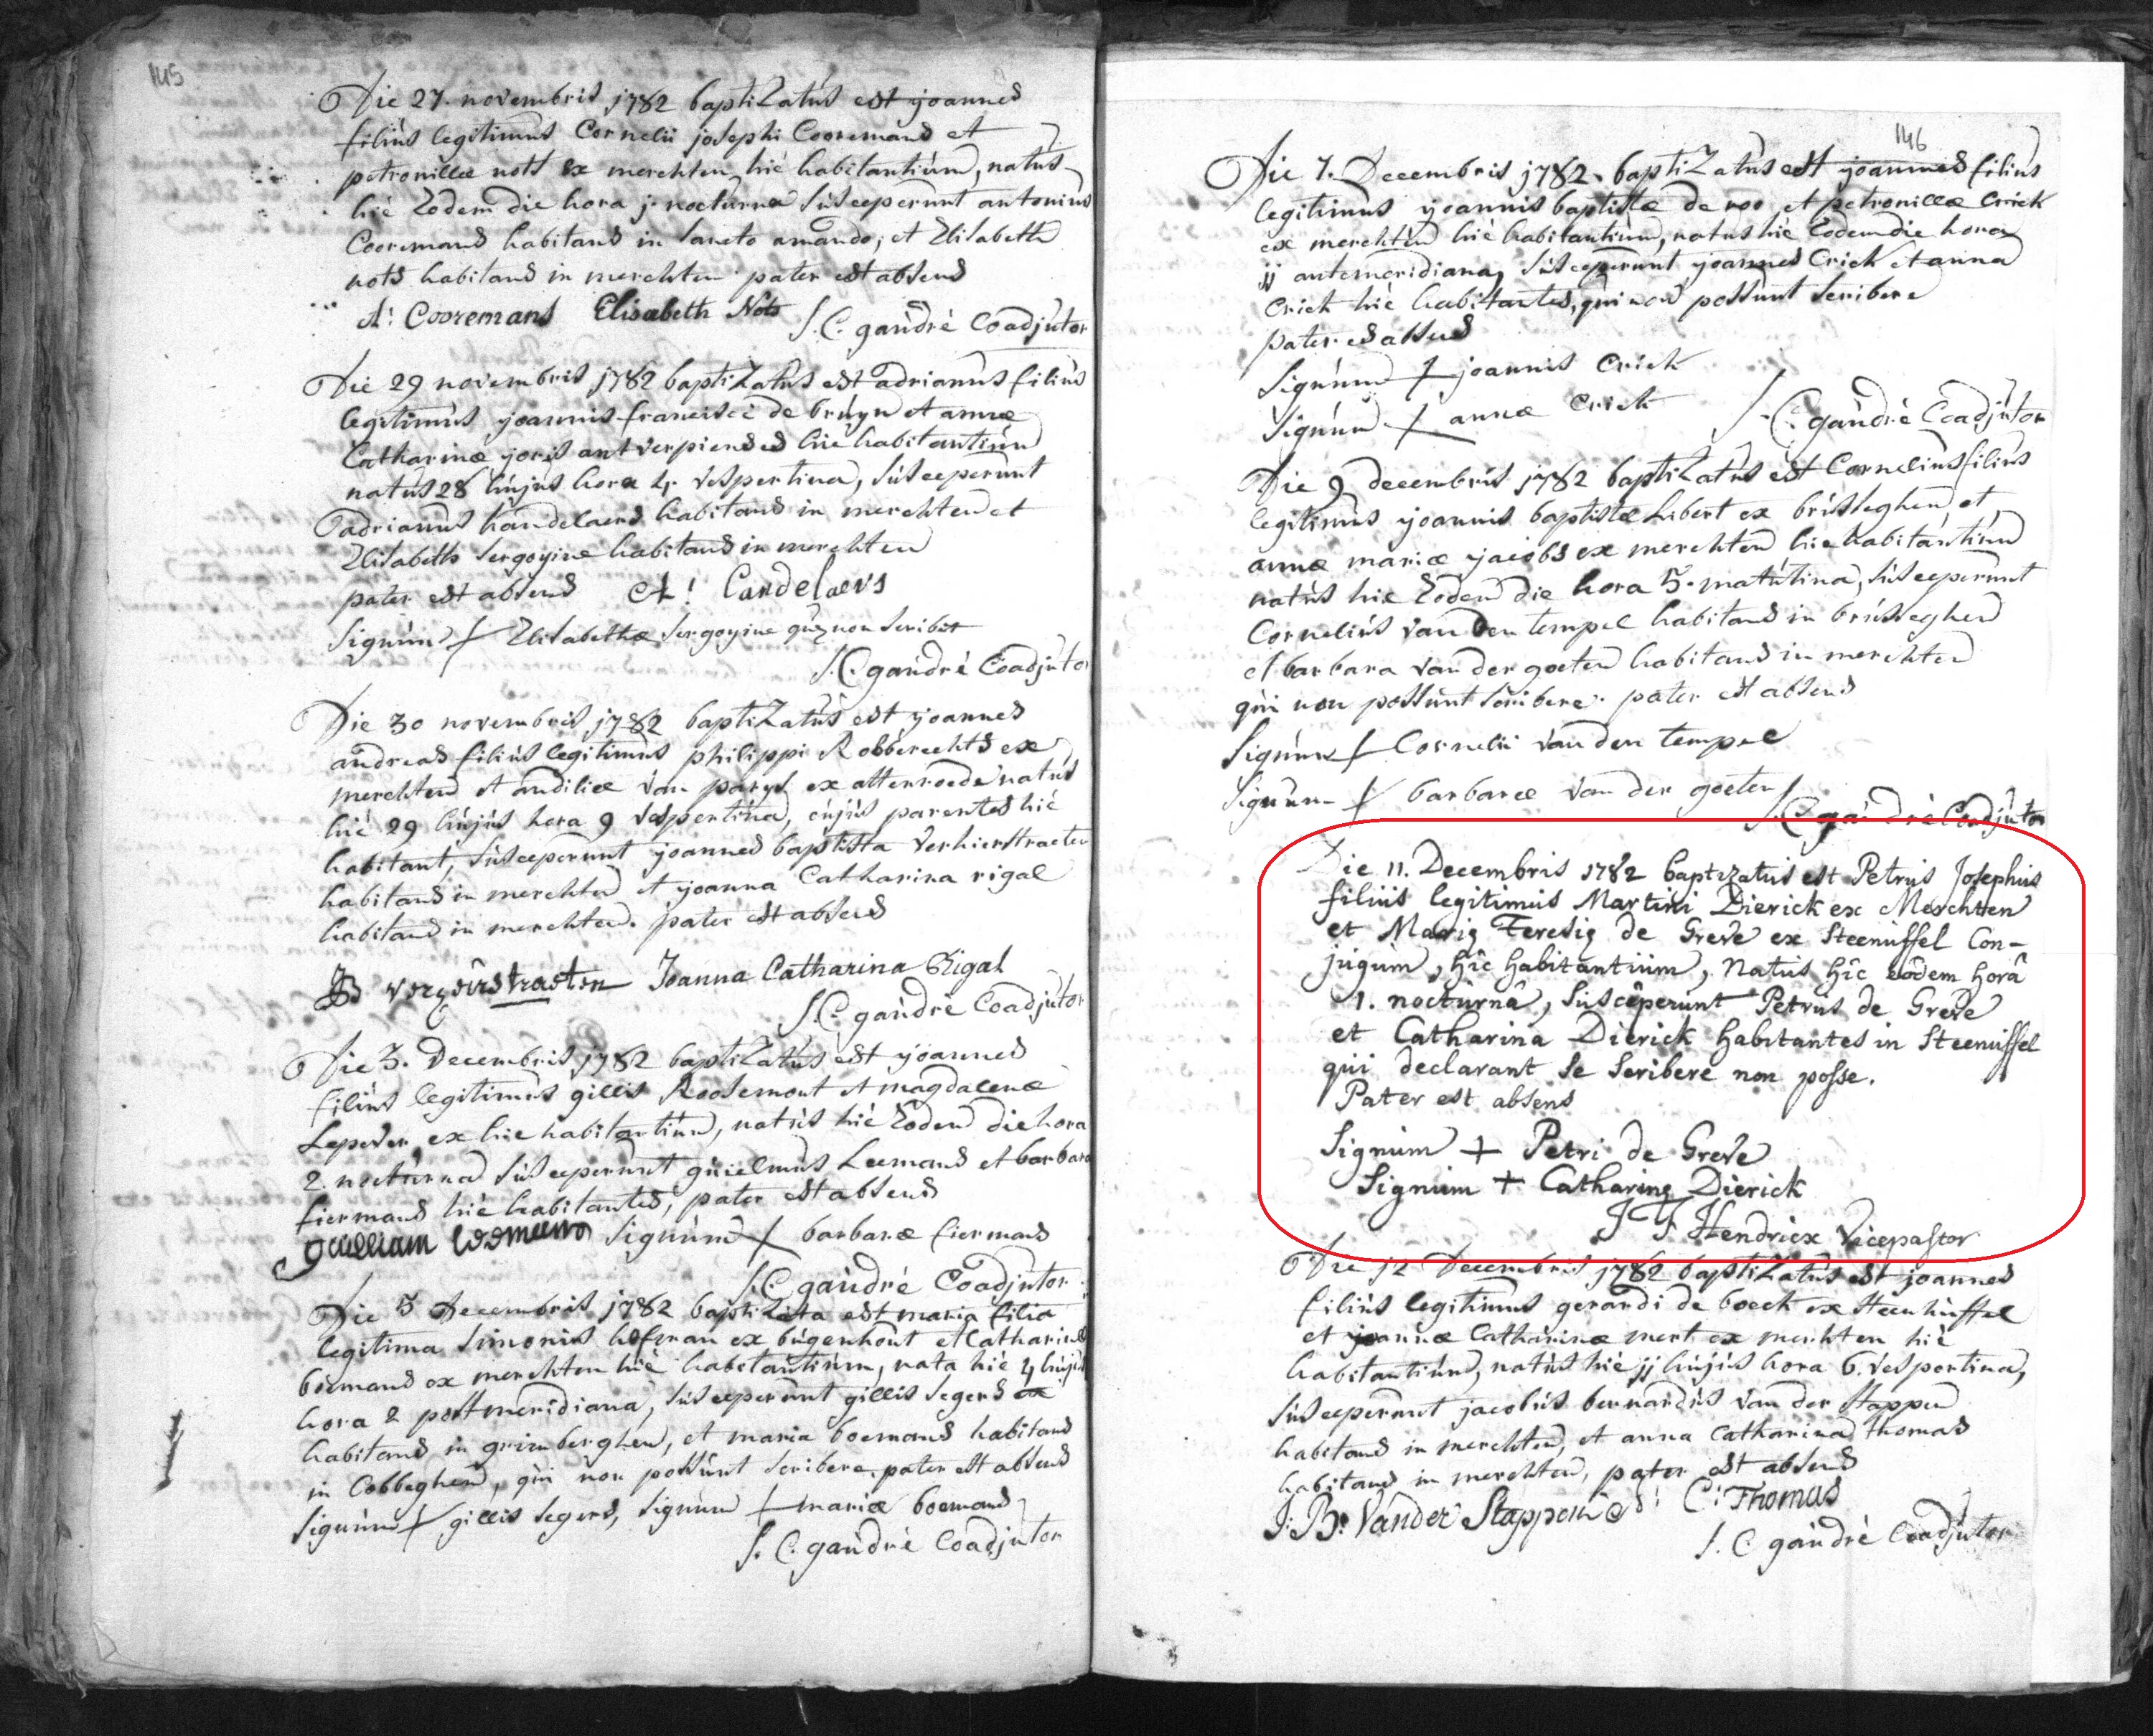 145
Die 27. novembris 1782 baptizatus est joannes
filius legitimus Cornelii josephi Cooremans et
petronillæ nots ex merchten hic habitantium, natus
hic Eodem die hora j. nocturna Susceperunt antonius
Cooremans habitans in Sancto amando, et Elisabeth
nots habitans in merchten pater est absens
A: Cooremans Elisabeth Nots
S. C. gaudré Coadjutor
Die 29 novembris 1782 baptizatus est adrianus filius
legitimus joannis francisci de bruyn et annæ
Catharinæ joris antverpienses hic habitantium
natus 28 hujus hora 4 vespertina, Susceperunt
adrianus Candelaers habitans in merchten et
Elisabeth Sergoyine habitans in merchten
pater est absens A: Candelaers
Signum + Elisabethæ Sergoyine quæ non Scribit
S. C. gaudré Coadjutor
Die 30 novembris 1782 baptizatus est joannes
andreas filius legitimus philippi Robberechts ex
merchten et odiliæ Van parys ex attenroede natus
hic 29 hujus hora 9 vespertina, cujus parentes hic
habitant, Susceperunt joannes baptista Verhierstraeten
habitans in merchten et joanna Catharina rigal
habitans in merchten. pater est absens
JB Joanna Catharina Rigal
S. C. gaudré Coadjutor
Die 3. Decembris 1782 baptizatus est joannes
filius legitimus gillis Roosemont et magdalenæ
Lepever ex hic habitantium, natus hic Eodem die hora
2. nocturna Susceperunt guielmus Leemans et barbara
fiermans hic habitantes, pater est absens
Signum + barbaræ fiermans
S. C. gaudré Coadjutor
Die 5 Decembris 1782 baptizata est maria filia
legitima Simonis hofman ex bugenhout et Catharinæ
boemans ex merchten hic habitantium, nata hic 4 hujus
hora 2 postmeridiana, Susceperunt gillis Segers ex
habitans in grimberghen, et maria boemans habitans
in Cobbeghem, qui non possunt Scribere. pater est absens
Signum + gillis Segers, Signum + mariæ boemans
S. C. gaudré Coadjutor
146
Die 7. Decembris 1782. baptizatus est joannes filius
legitimus joannis baptistæ de roo et petronillæ Crick
ex merchten hic habitantium, natus hic Eodem die hora
jj antemeridiana, Susceperunt joannes Crick et anna
Crick hic habitantes, qui non possunt Scribere
pater est absens
Signum + joannis Crick
Signum + annæ Crick
S. C. gaudré Coadjutor
Die 9 decembris 1782 baptizatus est Cornelius filius
legitimus joannis baptistæ Libert ex brusseghem et
annæ mariæ jacobs ex merchten hic habitantium
natus hic Eodem die hora 5. matutina, Susceperunt
Cornelius Van den tempel habitans in brusseghem
et barbara Van der goeten habitans in merchten
qui non possunt Scribere. pater est absens
Signum + Cornelii Van den tempel
Signum + barbaræ Van der goeten
S. C. gaudré Coadjutor
Die 11. Decembris 1782 baptizatus est Petrus Josephus
filius legitimus Martini Dierick ex Merchten
et Mariæ Teresiæ de Greve ex Steenuffel Con-
jugum, hîc habitantium, Natus hîc eôdem horâ
1. nocturnâ, Susceperunt Petrus de Greve
et Catharina Dierick habitantes in Steenuffel
qui declarant Se Scribere non posse.
Pater est absens
Signum + Petri de Greve
Signum + Catharinæ Dierick
J F Hendricx Vicepastor
Die 12 Decembris 1782 baptizatus est joannes
filius legitimus gerardi de boeck ex Steenhuffel
et joannæ Catharinæ mert ex merchten hic
habitantium, natus hic jj hujus hora 6. vespertina,
Susceperunt jacobus bernardus Van der Stappen
habitans in merchten, et anna Catharina thomas
habitans in merchten, pater est absens
J: B: Vander Stappen C: Thomas
S. C gaudré Coadjutor